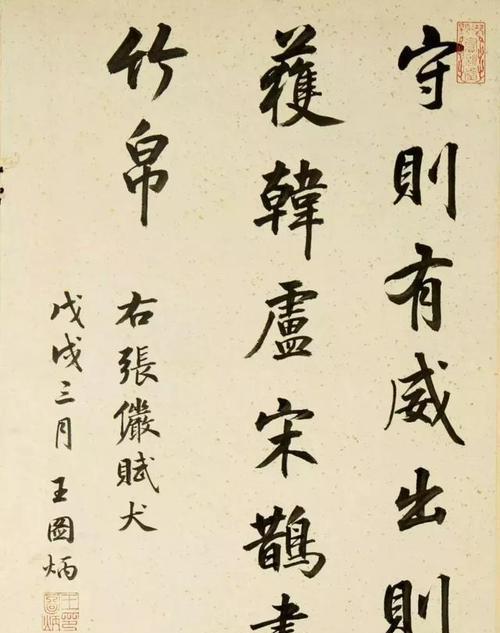 守則有威出則
獲韓盧宋鵲書
竹帛
右張儼賦犬
戊戌三月 王圖炳